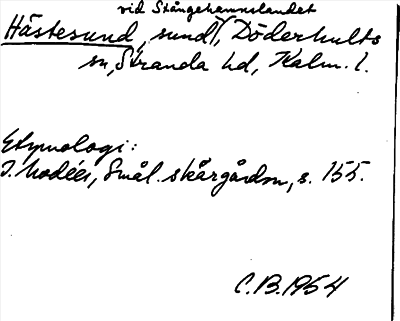 vid Stångehamnslandet
Hästesund, sund, Döderhults
sn, Stranda hd, Kalm. l.
Etymologi:
I. Modéer, Smål. skärgården, s. 155.
C.B. 1954